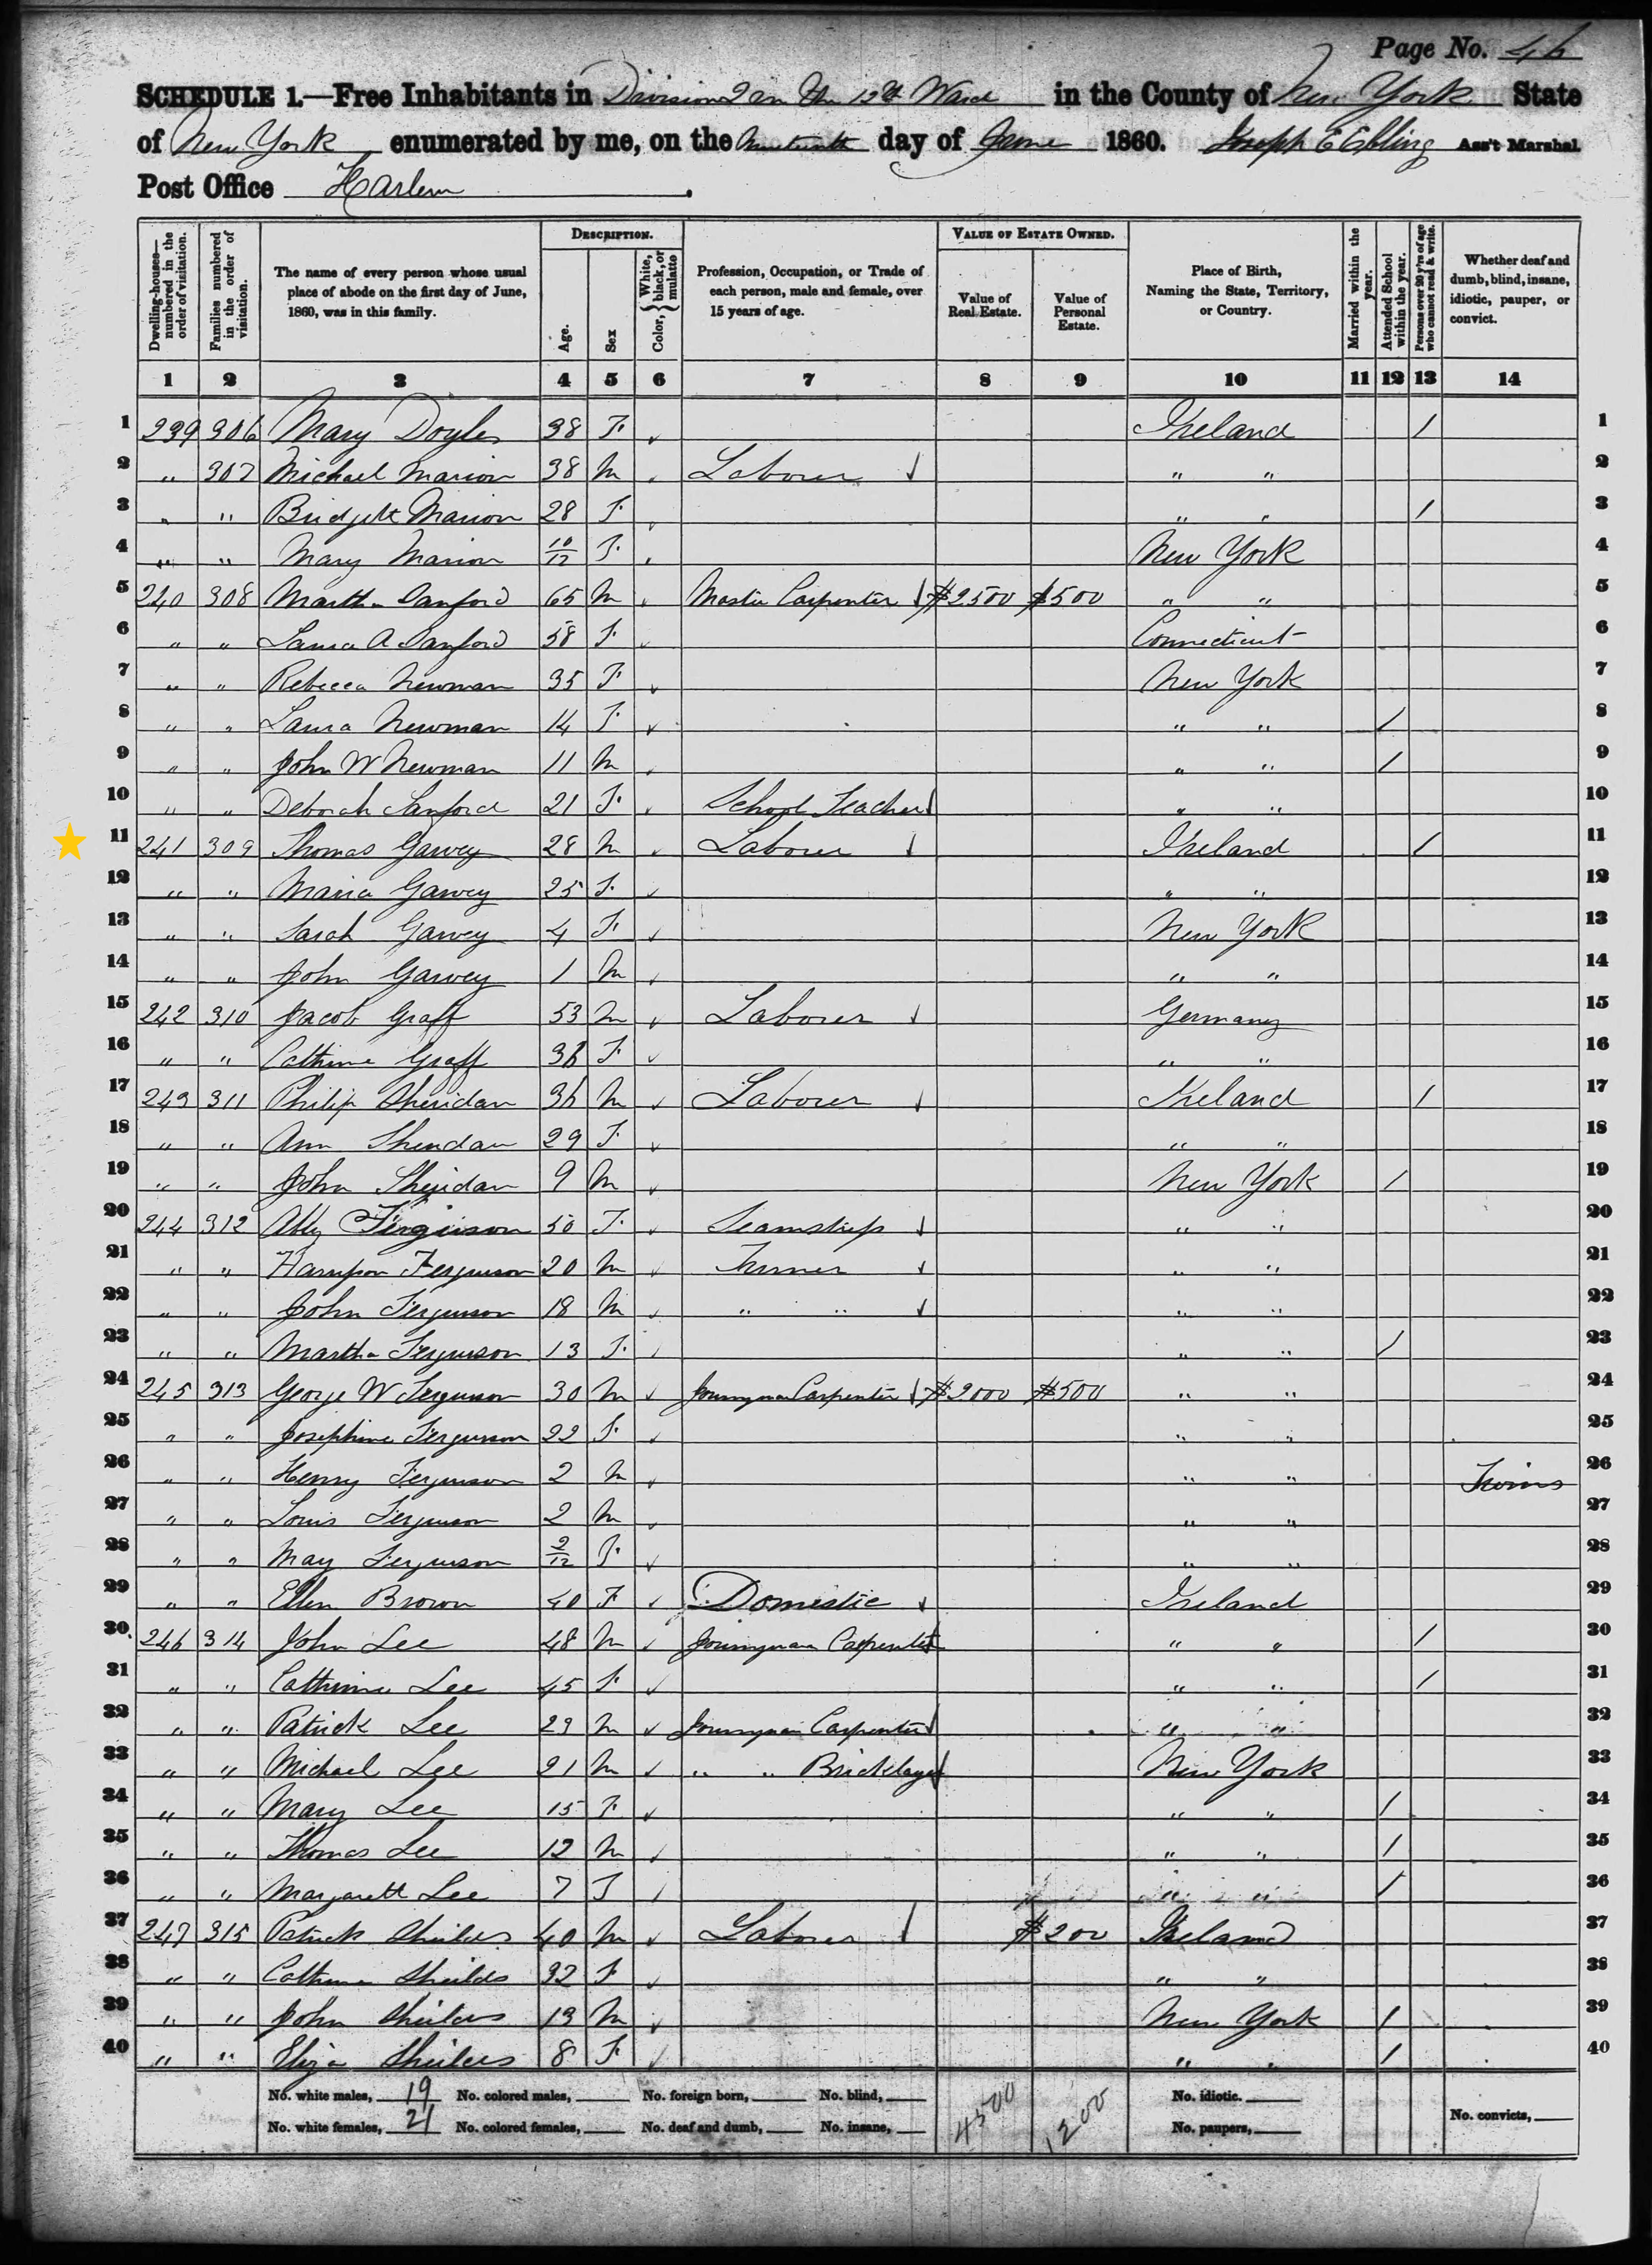 Page No. 46
SCHEDULE 1.—Free Inhabitants in Division 2 in the 12th Ward in the County of New York State
of New York enumerated by me, on the day of June 1860. Joseph E Ebling Ass't Marshal.
Post Office Harlem.
Dwelling-houses—numbered in the order of visitation. Families numbered in the order of visitation. The name of every person whose usual place of abode on the first day of June, 1860, was in this family. DESCRIPTION. Age. Sex Color, {White, black, or mulatto Profession, Occupation, or Trade of each person, male and female, over 15 years of age. VALUE OF ESTATE OWNED. Value of Real Estate. Value of Personal Estate. Place of Birth, Naming the State, Territory, or Country. Married within the year. Attended School within the year. Persons over 20 y'rs of age who cannot read & write. Whether deaf and dumb, blind, insane, idiotic, pauper, or convict.
1 2 3 4 5 6 7 8 9 10 11 12 13 14
1 239 306 Mary Doyles 38 F. Ireland / 1
2 " 307 Michael Marion 38 M Labourer " " 2
3 " " Bridgett Marion 28 F. " " / 3
4 " " Mary Marion 10/12 F. New York 4
5 240 308 Martha Sanford 65 M Master Carpenter $2500 $500 " " 5
6 " " Laura A Sanford 58 F. Connecticut 6
7 " " Rebecca Newman 35 F. New York 7
8 " " Laura Newman 14 F. " " / 8
9 " " John W Newman 11 M " " / 9
10 " " Deborah Sanford 21 F. School Teacher " " 10
11 241 309 Thomas Garvey 28 M Labourer Ireland / 11
12 " " Maria Garvey 25 F. " " 12
13 " " Sarah Garvey 4 F. New York 13
14 " " John Garvey 1 M " " 14
15 242 310 Jacob Graff 53 M Labourer Germany 15
16 " " Cathrine Graff 36 F. " " 16
17 243 311 Philip Sheridan 36 M Labourer Ireland / 17
18 " " Ann Sheridan 29 F. " " 18
19 " " John Sheridan 9 M New York / 19
20 244 312 Abby Ferguson 50 F. Seamstress " " 20
21 " " Hampson Ferguson 20 M Turner " " 21
22 " " John Ferguson 18 M " " " " 22
23 " " Martha Ferguson 13 F. " " / 23
24 245 313 George W Ferguson 30 M Journyman Carpenter $2000 $500 " " 24
25 " " Josephine Ferguson 22 F. " " 25
26 " " Henry Ferguson 2 M " " Twins 26
27 " " Louis Ferguson 2 M " " 27
28 " " May Ferguson 2/12 F. " " 28
29 " " Ellen Brown 40 F Domestic Ireland 29
30 246 314 John Lee 48 M Journyman Carpenter " " / 30
31 " " Cathrine Lee 45 F. " " / 31
32 " " Patrick Lee 23 M Journyman Carpenter " " 32
33 " " Michael Lee 21 M " " Bricklayer New York 33
34 " " Mary Lee 15 F. " " / 34
35 " " Thomas Lee 12 M " " / 35
36 " " Margarett Lee 7 F " " / 36
37 247 315 Patrick Sheilds 40 M Labourer $200 Ireland 37
38 " " Cathrine Sheilds 32 F " " 38
39 " " John Sheilds 13 M New York / 39
40 " " Eliza Sheilds 8 F " " / 40
No. white males, 19 No. colored males, No. foreign born, No. blind, 4500 1200 No. idiotic.
No. white females, 21 No. colored females, No. deaf and dumb, No. insane, No. paupers, No. convicts,